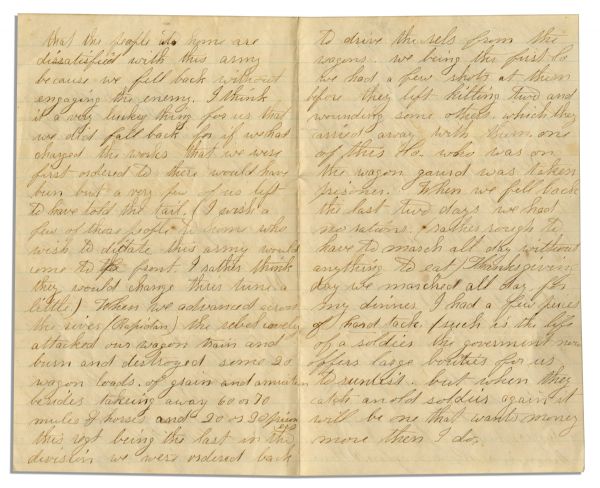 that the people to home are
dissatisfied with this army
because we fell back without
engaging the enemy. I think
it a very lucky thing for us that
we did fall back for if we had
charged the works that we were
first ordered to there would have
bin but a very few of us left
to have told the tail. (I wish a
few of those people to home who
wish to dictate this army would
come to the front. I rather think
they would change thier tune a
little) When we advanced across
the river (Rapidan) the rebel cavelry
attacked our wagon train and
burn and destroyed some 20
wagon loads. of grain and
besides takeing away 60 or 70
mules & horses and 20 or 30
this regt being the last in the
division we were ordered back
to drive the rebls from the
wagons. we being the first Co
we had a few shots at them
before they left killing two and
wounding some others. which they
carried away with them. one
of this Co. who was on
the wagon gaurd was taken
prisoner. When we fell back
the last two days we had
no rations. rather rough to
have to march all day without
anything to eat) Thanksgiving
day we marched all day. for
my dinner I had a few pieces
of hard tack. (such is the life
of a soldier the goverment now
offers large bounties for us
to reenlist. but when they
catch an old soldier again it
will be one that wants money
more then I do.